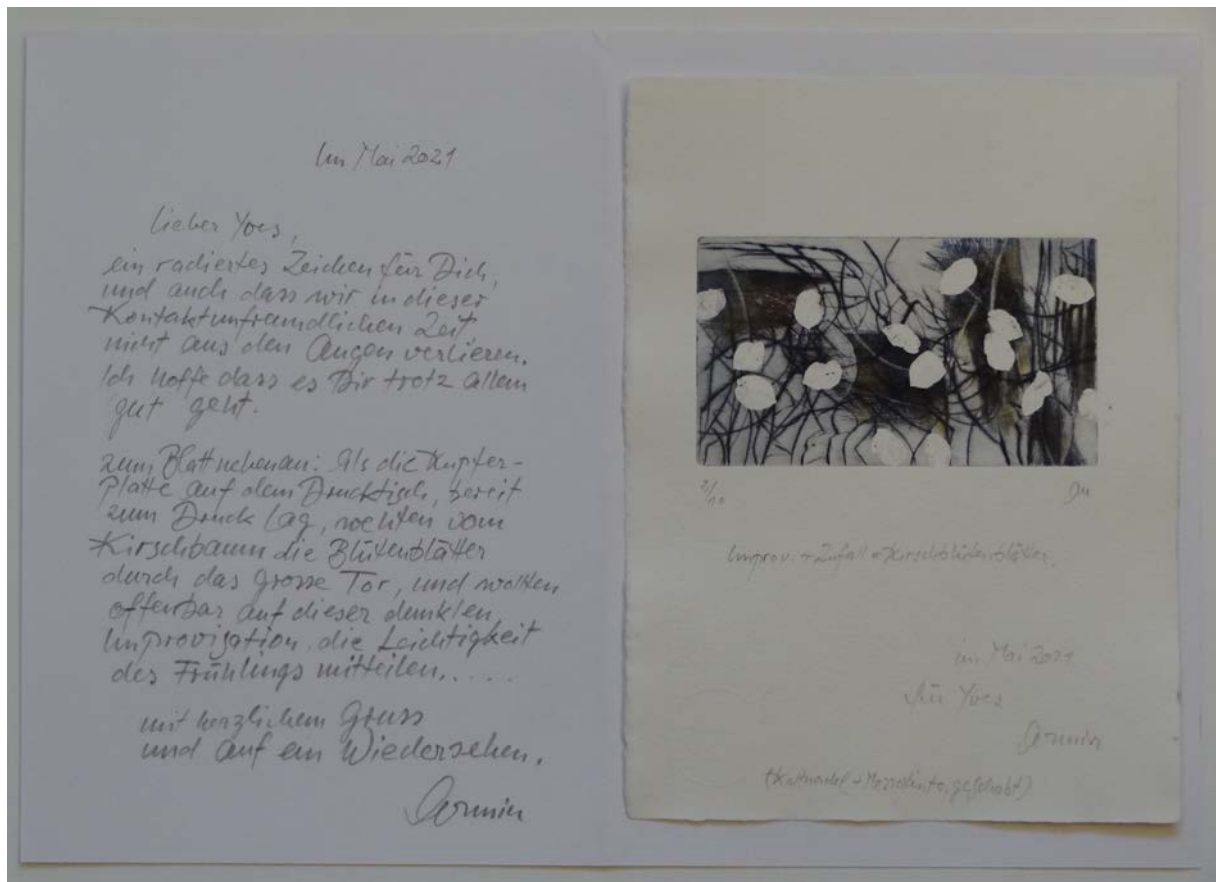 Im Mai 2021
Lieber Yves,
ein radiertes Zeichen für Dich,
und auch dass wir in dieser
Kontaktunfreundlichen Zeit
nicht aus den Augen verlieren.
Ich hoffe dass es Dir trotz allem
gut geht.
zum Blatt nebenan: Als die Kupfer-
Platte auf dem Drucktisch, bereit
zum Druck lag, wehten vom
Kirschbaum die Blütenblätter
durch das grosse Tor, und wollten
offenbar auf dieser dunklen
Improvisation die Leichtigkeit
des Frühlings mitteilen.....
mit herzlichem Gruss
und auf ein Wiedersehen.
Armin
2/10
Improv. + Zufall = Kirschblütenblätter.
im Mai 2021
für Yves
Armin
(Kaltnadel + Mezzotinto, geschabt)